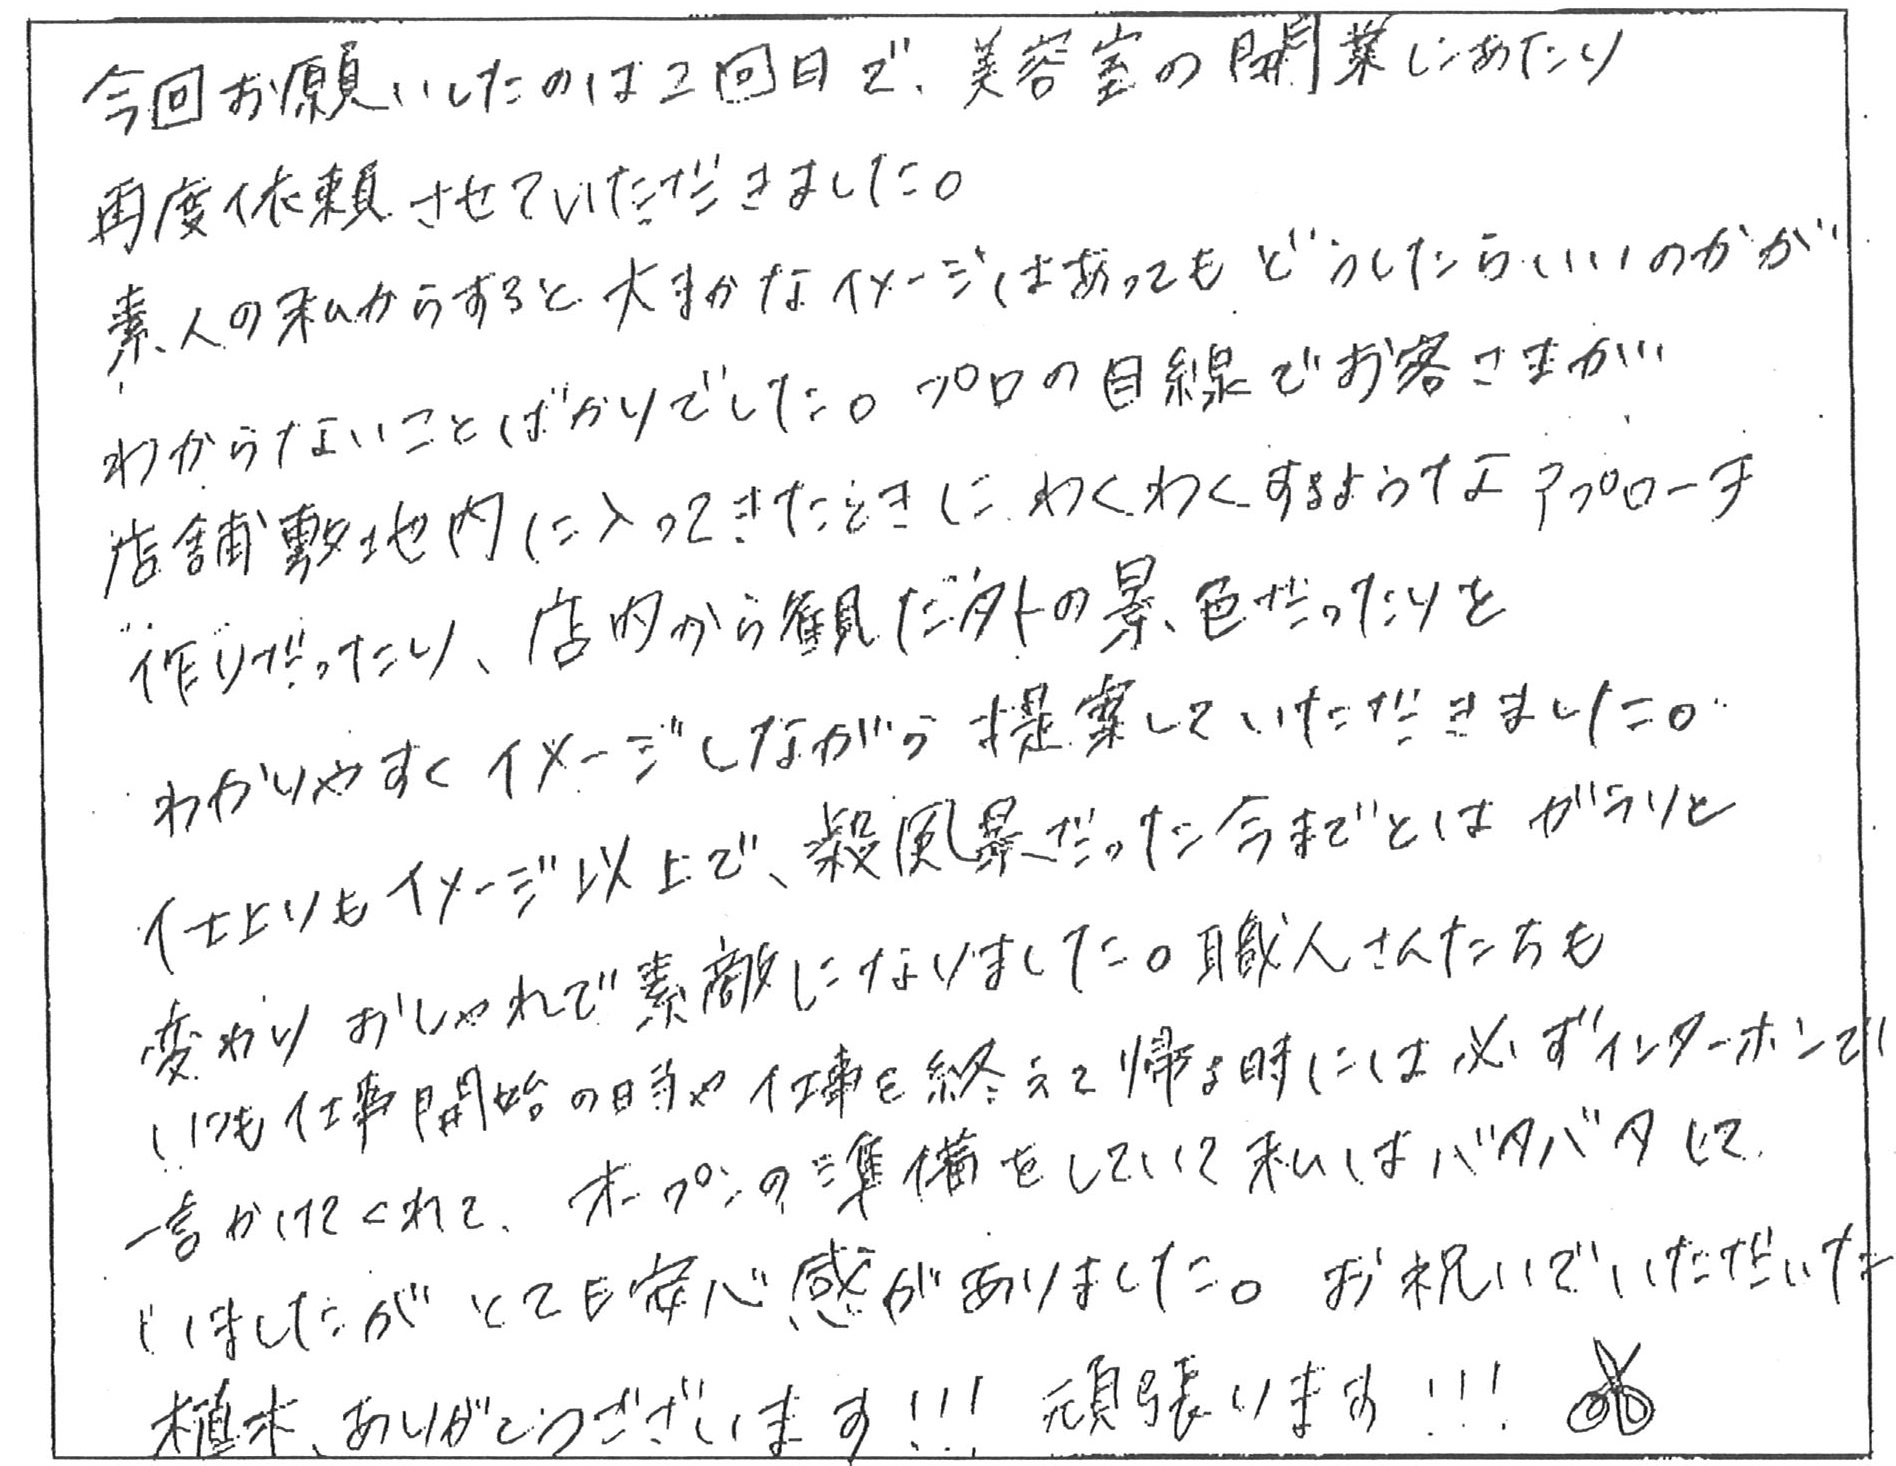 今回お願いしたのは2回目で、美容室の開業にあたり
再度依頼させていただきました。
素人の私からすると大まかなイメージはあってもどうしたらいいのかが
わからないことばかりでした。プロの目線でお客さまが
店舗敷地内に入ってきたときにわくわくするようなアプローチ
作りだったり、店内から観た外の景色だったりと
わかりやすくイメージしながら提案していただきました。
仕上りもイメージ以上で、殺風景だった今までとはガラリと
変わりおしゃれで素敵になりました。職人さんたちも
いつも仕事開始の時や仕事を終えて帰る時には必ずインターホンで
一言かけてくれて、オープンの準備をしていて私はバタバタして
いましたがとても安心感がありました。お祝いでいただいた
植木、ありがとうございます!!! 頑張ります!!!